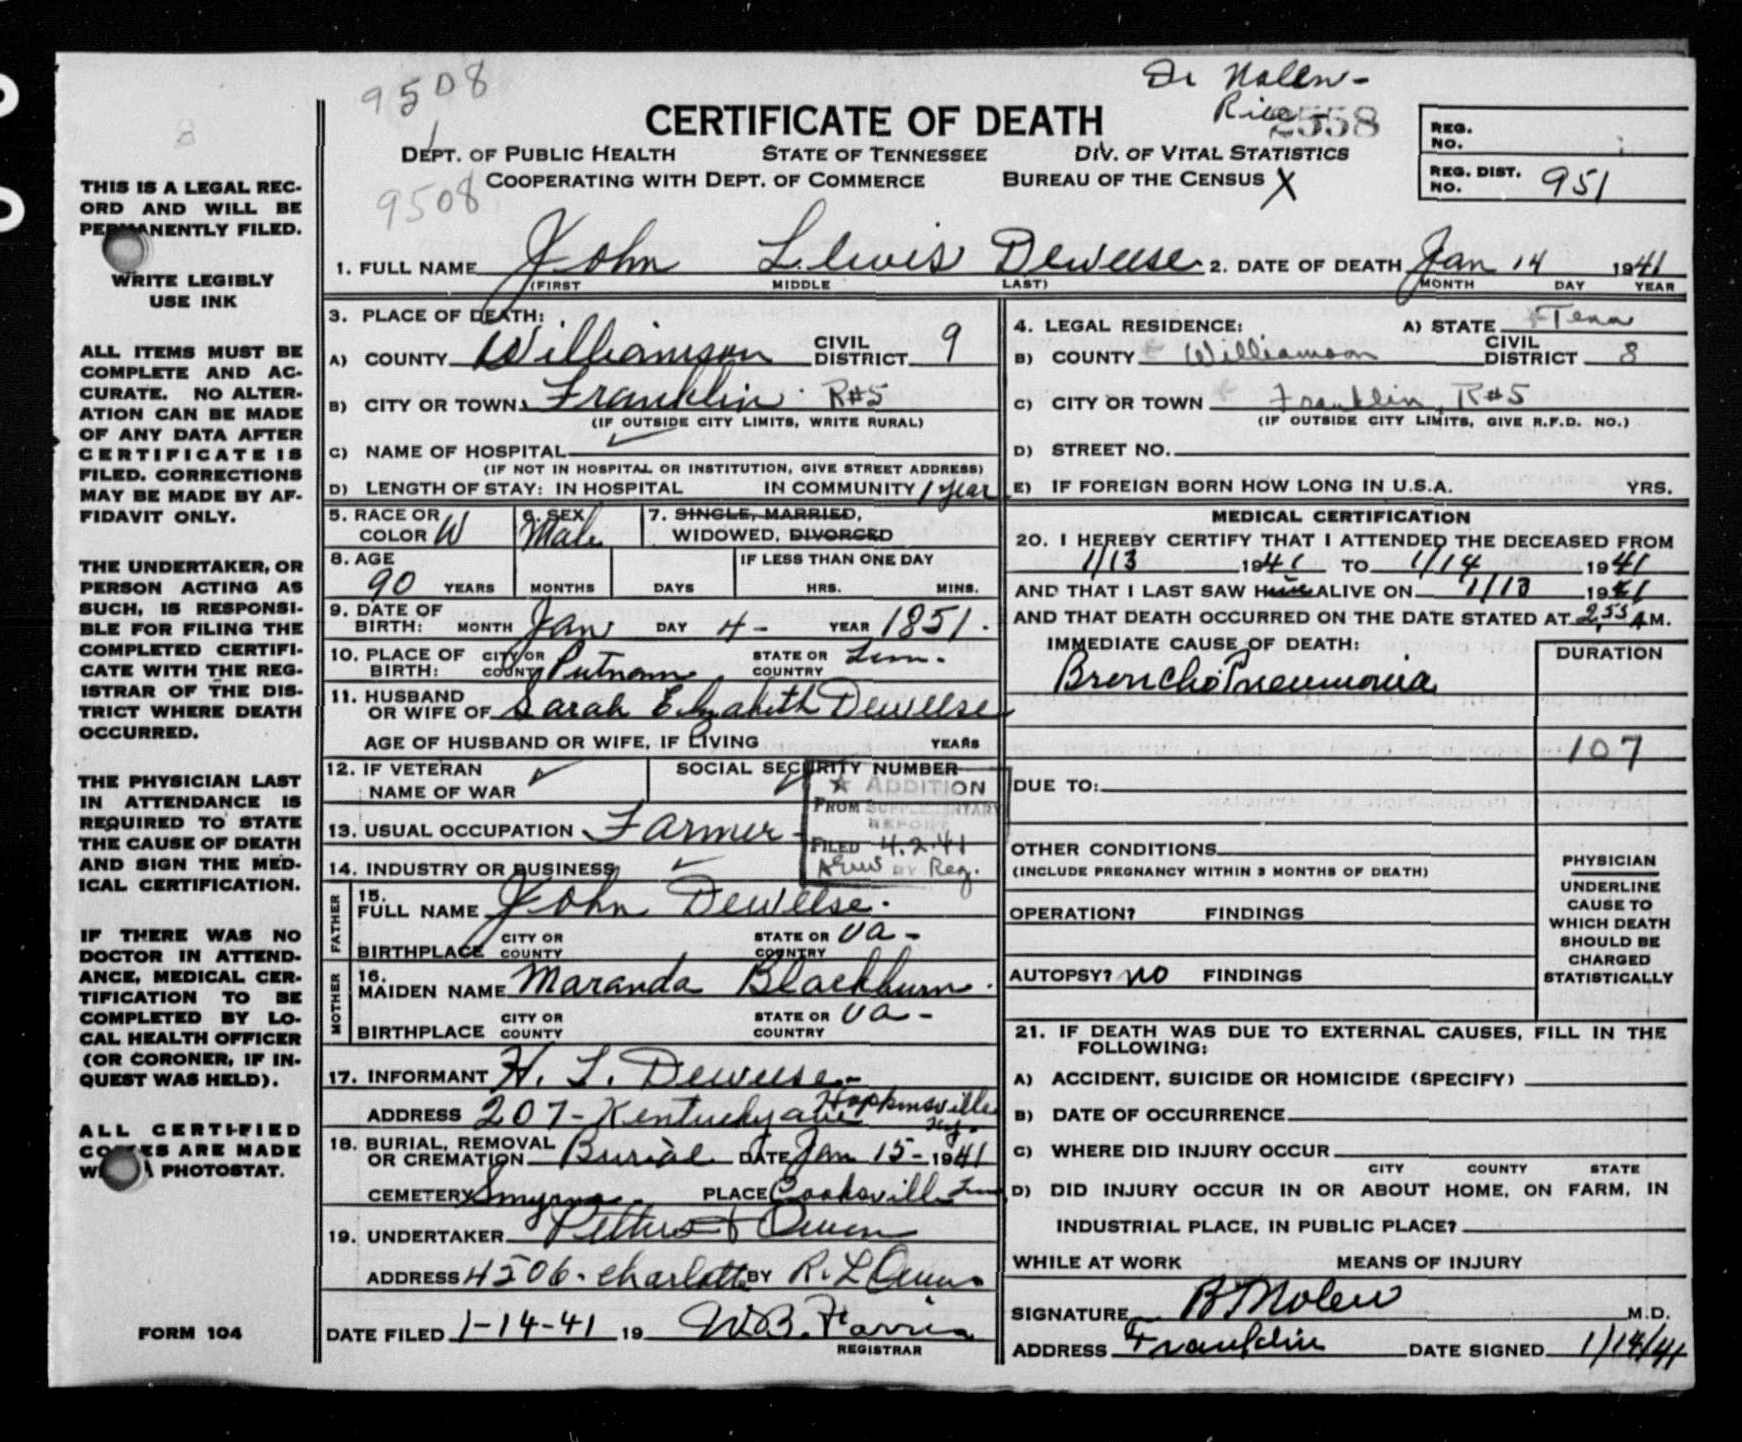 9508
Dr Nolen-
Rice
2558
CERTIFICATE OF DEATH
DEPT. OF PUBLIC HEALTH STATE OF TENNESSEE DIV. OF VITAL STATISTICS
COOPERATING WITH DEPT. OF COMMERCE BUREAU OF THE CENSUS X
9508
REG. NO.
REG. DIST. NO. 951
THIS IS A LEGAL REC-
ORD AND WILL BE
PERMANENTLY FILED.
WRITE LEGIBLY
USE INK
ALL ITEMS MUST BE
COMPLETE AND AC-
CURATE. NO ALTER-
ATION CAN BE MADE
OF ANY DATA AFTER
CERTIFICATE IS
FILED. CORRECTIONS
MAY BE MADE BY AF-
FIDAVIT ONLY.
THE UNDERTAKER, OR
PERSON ACTING AS
SUCH, IS RESPONSI-
BLE FOR FILING THE
COMPLETED CERTIFI-
CATE WITH THE REG-
ISTRAR OF THE DIS-
TRICT WHERE DEATH
OCCURRED.
THE PHYSICIAN LAST
IN ATTENDANCE IS
REQUIRED TO STATE
THE CAUSE OF DEATH
AND SIGN THE MED-
ICAL CERTIFICATION.
IF THERE WAS NO
DOCTOR IN ATTEND-
ANCE, MEDICAL CER-
TIFICATION TO BE
COMPLETED BY LO-
CAL HEALTH OFFICER
(OR CORONER, IF IN-
QUEST WAS HELD).
ALL CERTIFIED
COPIES ARE MADE
A PHOTOSTAT.
FORM 104
1. FULL NAME John Lewis Deweese 2. DATE OF DEATH Jan 14 1941
(FIRST MIDDLE LAST) MONTH DAY YEAR
3. PLACE OF DEATH:
A) COUNTY Williamson CIVIL DISTRICT 9
B) CITY OR TOWN Franklin R#5
(IF OUTSIDE CITY LIMITS, WRITE RURAL)
C) NAME OF HOSPITAL
(IF NOT IN HOSPITAL OR INSTITUTION, GIVE STREET ADDRESS)
D) LENGTH OF STAY: IN HOSPITAL IN COMMUNITY 1 year
4. LEGAL RESIDENCE: A) STATE Tenn
B) COUNTY Williamson CIVIL DISTRICT 8
C) CITY OR TOWN Franklin, R#5
(IF OUTSIDE CITY LIMITS, GIVE R.F.D. NO.)
D) STREET NO.
E) IF FOREIGN BORN HOW LONG IN U.S.A. YRS.
5. RACE OR COLOR W 6. SEX Male 7. SINGLE, MARRIED, WIDOWED, DIVORCED
8. AGE 90 YEARS MONTHS DAYS IF LESS THAN ONE DAY HRS. MINS.
9. DATE OF BIRTH: MONTH Jan DAY 4- YEAR 1851.
10. PLACE OF BIRTH: CITY OR COUNTY Putnam STATE OR COUNTRY Tenn.
11. HUSBAND OR WIFE OF Sarah Elizabeth Deweese
AGE OF HUSBAND OR WIFE, IF LIVING YEARS
12. IF VETERAN NAME OF WAR SOCIAL SECURITY NUMBER
★ ADDITION
FROM SUPPLEMENTARY
REPORT
FILED 4.2.41
BY Reg.
13. USUAL OCCUPATION Farmer
14. INDUSTRY OR BUSINESS
FATHER
15. FULL NAME John Deweese.
BIRTHPLACE CITY OR COUNTY STATE OR COUNTRY Va-
MOTHER
16. MAIDEN NAME Maranda Blackburn.
BIRTHPLACE CITY OR COUNTY STATE OR COUNTRY Va-
17. INFORMANT H. L. Deweese-
ADDRESS 207- Kentucky ave Hopkinsville Ky.
18. BURIAL, REMOVAL OR CREMATION Burial DATE Jan 15- 1941
CEMETERY Smyrna. PLACE Cooksville Tenn
19. UNDERTAKER Pettus & Owen
ADDRESS 4506. Charlotte BY R. L Owen.
DATE FILED 1-14-41 19 W.B. Farris
REGISTRAR
MEDICAL CERTIFICATION
20. I HEREBY CERTIFY THAT I ATTENDED THE DECEASED FROM
1/13 1941 TO 1/14 1941
AND THAT I LAST SAW Him ALIVE ON 1/13 1941
AND THAT DEATH OCCURRED ON THE DATE STATED AT 2:55 A M.
IMMEDIATE CAUSE OF DEATH: DURATION
Broncho Pneumonia
107
DUE TO:
OTHER CONDITIONS
(INCLUDE PREGNANCY WITHIN 3 MONTHS OF DEATH)
OPERATION? FINDINGS
AUTOPSY? no FINDINGS
PHYSICIAN
UNDERLINE
CAUSE TO
WHICH DEATH
SHOULD BE
CHARGED
STATISTICALLY
21. IF DEATH WAS DUE TO EXTERNAL CAUSES, FILL IN THE
FOLLOWING:
A) ACCIDENT, SUICIDE OR HOMICIDE (SPECIFY)
B) DATE OF OCCURRENCE
C) WHERE DID INJURY OCCUR
CITY COUNTY STATE
D) DID INJURY OCCUR IN OR ABOUT HOME, ON FARM, IN
INDUSTRIAL PLACE, IN PUBLIC PLACE?
WHILE AT WORK MEANS OF INJURY
SIGNATURE B T Nolen M.D.
ADDRESS Franklin DATE SIGNED 1/14/41